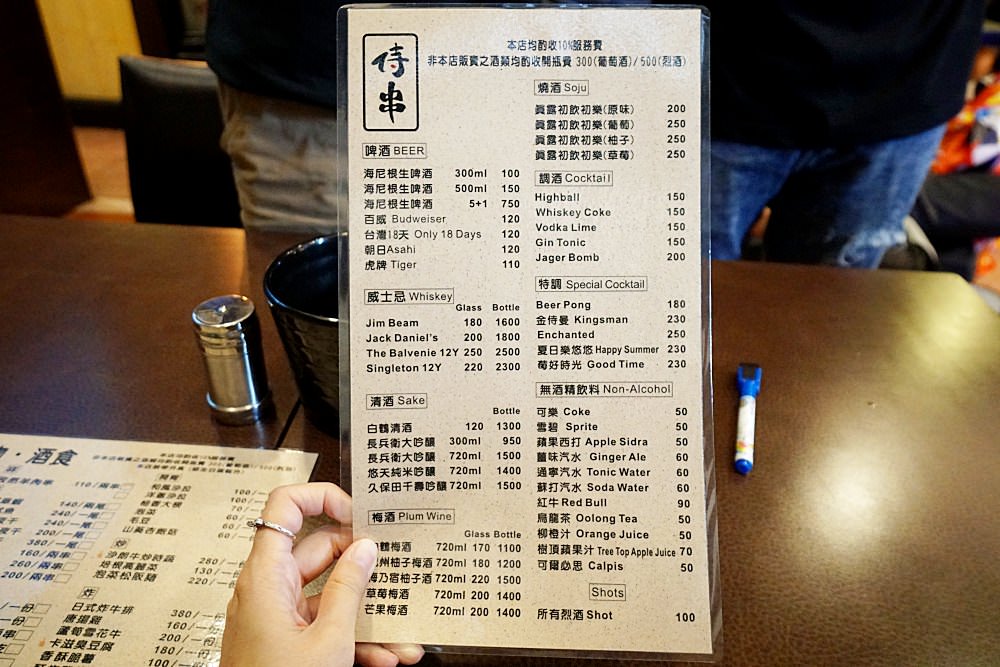 侍串
本店均酌收10%服務費
非本店販賣之酒類均酌收開瓶費 300(葡萄酒)/500(烈酒)
啤酒 BEER
海尼根生啤酒 300ml 100
海尼根生啤酒 500ml 150
海尼根生啤酒 5+1 750
百威 Budweiser 120
台灣18天 Only 18 Days 120
朝日Asahi 120
虎牌 Tiger 110
威士忌 Whiskey
Glass Bottle
Jim Beam 180 1600
Jack Daniel's 200 1800
The Balvenie 12Y 250 2500
Singleton 12Y 220 2300
清酒 Sake
Bottle
白鶴清酒 120 1300
長兵衛大吟釀 300ml 950
長兵衛大吟釀 720ml 1500
悠天純米吟釀 720ml 1400
久保田千壽吟釀 720ml 1500
梅酒 Plum Wine
Glass Bottle
鶴梅酒 720ml 170 1100
州柚子梅酒 720ml 180 1200
梅乃宿柚子酒 720ml 220 1500
草莓梅酒 720ml 200 1400
芒果梅酒 720ml 200 1400
燒酒 Soju
眞露初飲初樂(原味) 200
眞露初飲初樂(葡萄) 250
眞露初飲初樂(柚子) 250
眞露初飲初樂(草莓) 250
調酒 Cocktail
Highball 150
Whiskey Coke 150
Vodka Lime 150
Gin Tonic 150
Jager Bomb 200
特調 Special Cocktail
Beer Pong 180
金侍曼 Kingsman 230
Enchanted 250
夏日樂悠悠 Happy Summer 230
萄好時光 Good Time 230
無酒精飲料 Non-Alcohol
可樂 Coke 50
雪碧 Sprite 50
蘋果西打 Apple Sidra 50
薑味汽水 Ginger Ale 60
通寧汽水 Tonic Water 60
蘇打汽水 Soda Water 60
紅牛 Red Bull 90
烏龍茶 Oolong Tea 50
柳橙汁 Orange Juice 50
樹頂蘋果汁 Tree Top Apple Juice 70
可爾必思 Calpis 50
Shots
所有烈酒 Shot 100
酒食
本店均酌收10%服務費
110/兩串
140/兩尾
240/一尾
240/一尾
200/一串
380/一串
160/兩串
260/兩串
200/兩串
和風沙拉 100/一
洋蔥沙拉 100/一
泡菜 60/一
毛豆 60/一
炒
沙朗牛炒時蔬 280/一
培根高麗菜 130/一
泡菜松阪豬 220/一
炸
日式炸牛排 380/一份
唐揚雞 160/一份
蘆筍雪花牛 200/一份
卡滋臭豆腐 180/一份
香酥脆薯 100/一份